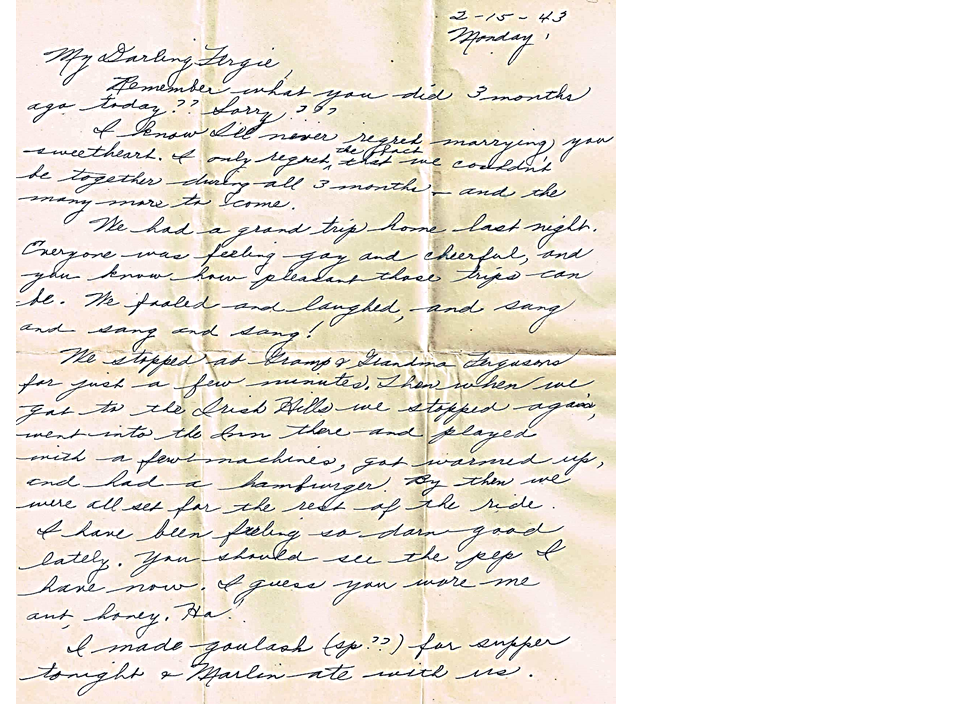 2-15-43
Monday,
My Darling Fergie,
Remember what you did 3 months
ago today?? Sorry???
I know I'll never regret marrying you
sweetheart. I only regret the fact that we couldn't
be together during all 3 months - and the
many more to come.
We had a grand trip home last night.
Everyone was feeling gay and cheerful, and
you know how pleasant those trips can
be. We fooled and laughed, and sang
and sang and sang!
We stopped at Gramp & Grandma Fergusons
for just a few minutes. Then when we
got to the Irish Hills we stopped again,
went into the Inn there and played
with a few machines, got warmed up,
and had a hamburger. By then we
were all set for the rest of the ride.
I have been feeling so darn good
lately. You should see the pep I
have now. I guess you wore me
out, honey. Ha!
I made goulash (sp??) for supper
tonight & Marlin ate with us.